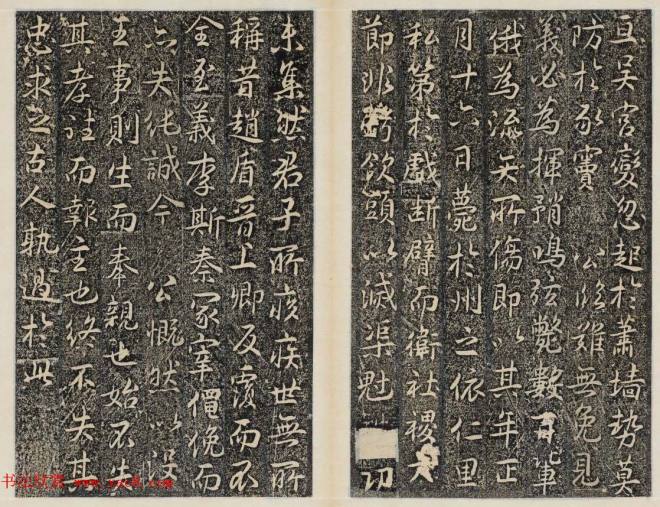 吳宮變忽起於蕭墻勢莫
防於豕竇 公臨難無免見
義必為揮矟鳴弦斃數百輩
俄為流矢所傷即以其年正
月十六日薨於州之依仁里
私第於戲斷臂而衛社稷大
節非虧飲頭以滅渠魁 功
未集然君子所疾疾世無所
稱昔趙盾晉上卿反覆而不
全至義李斯秦冢宰僶俛而
亡失純誠今 公慨然以沒
王事則生而奉親也始不失
其孝往而報主也終不失其
忠求之古人孰過於此
书法欣赏 www.yac8.com